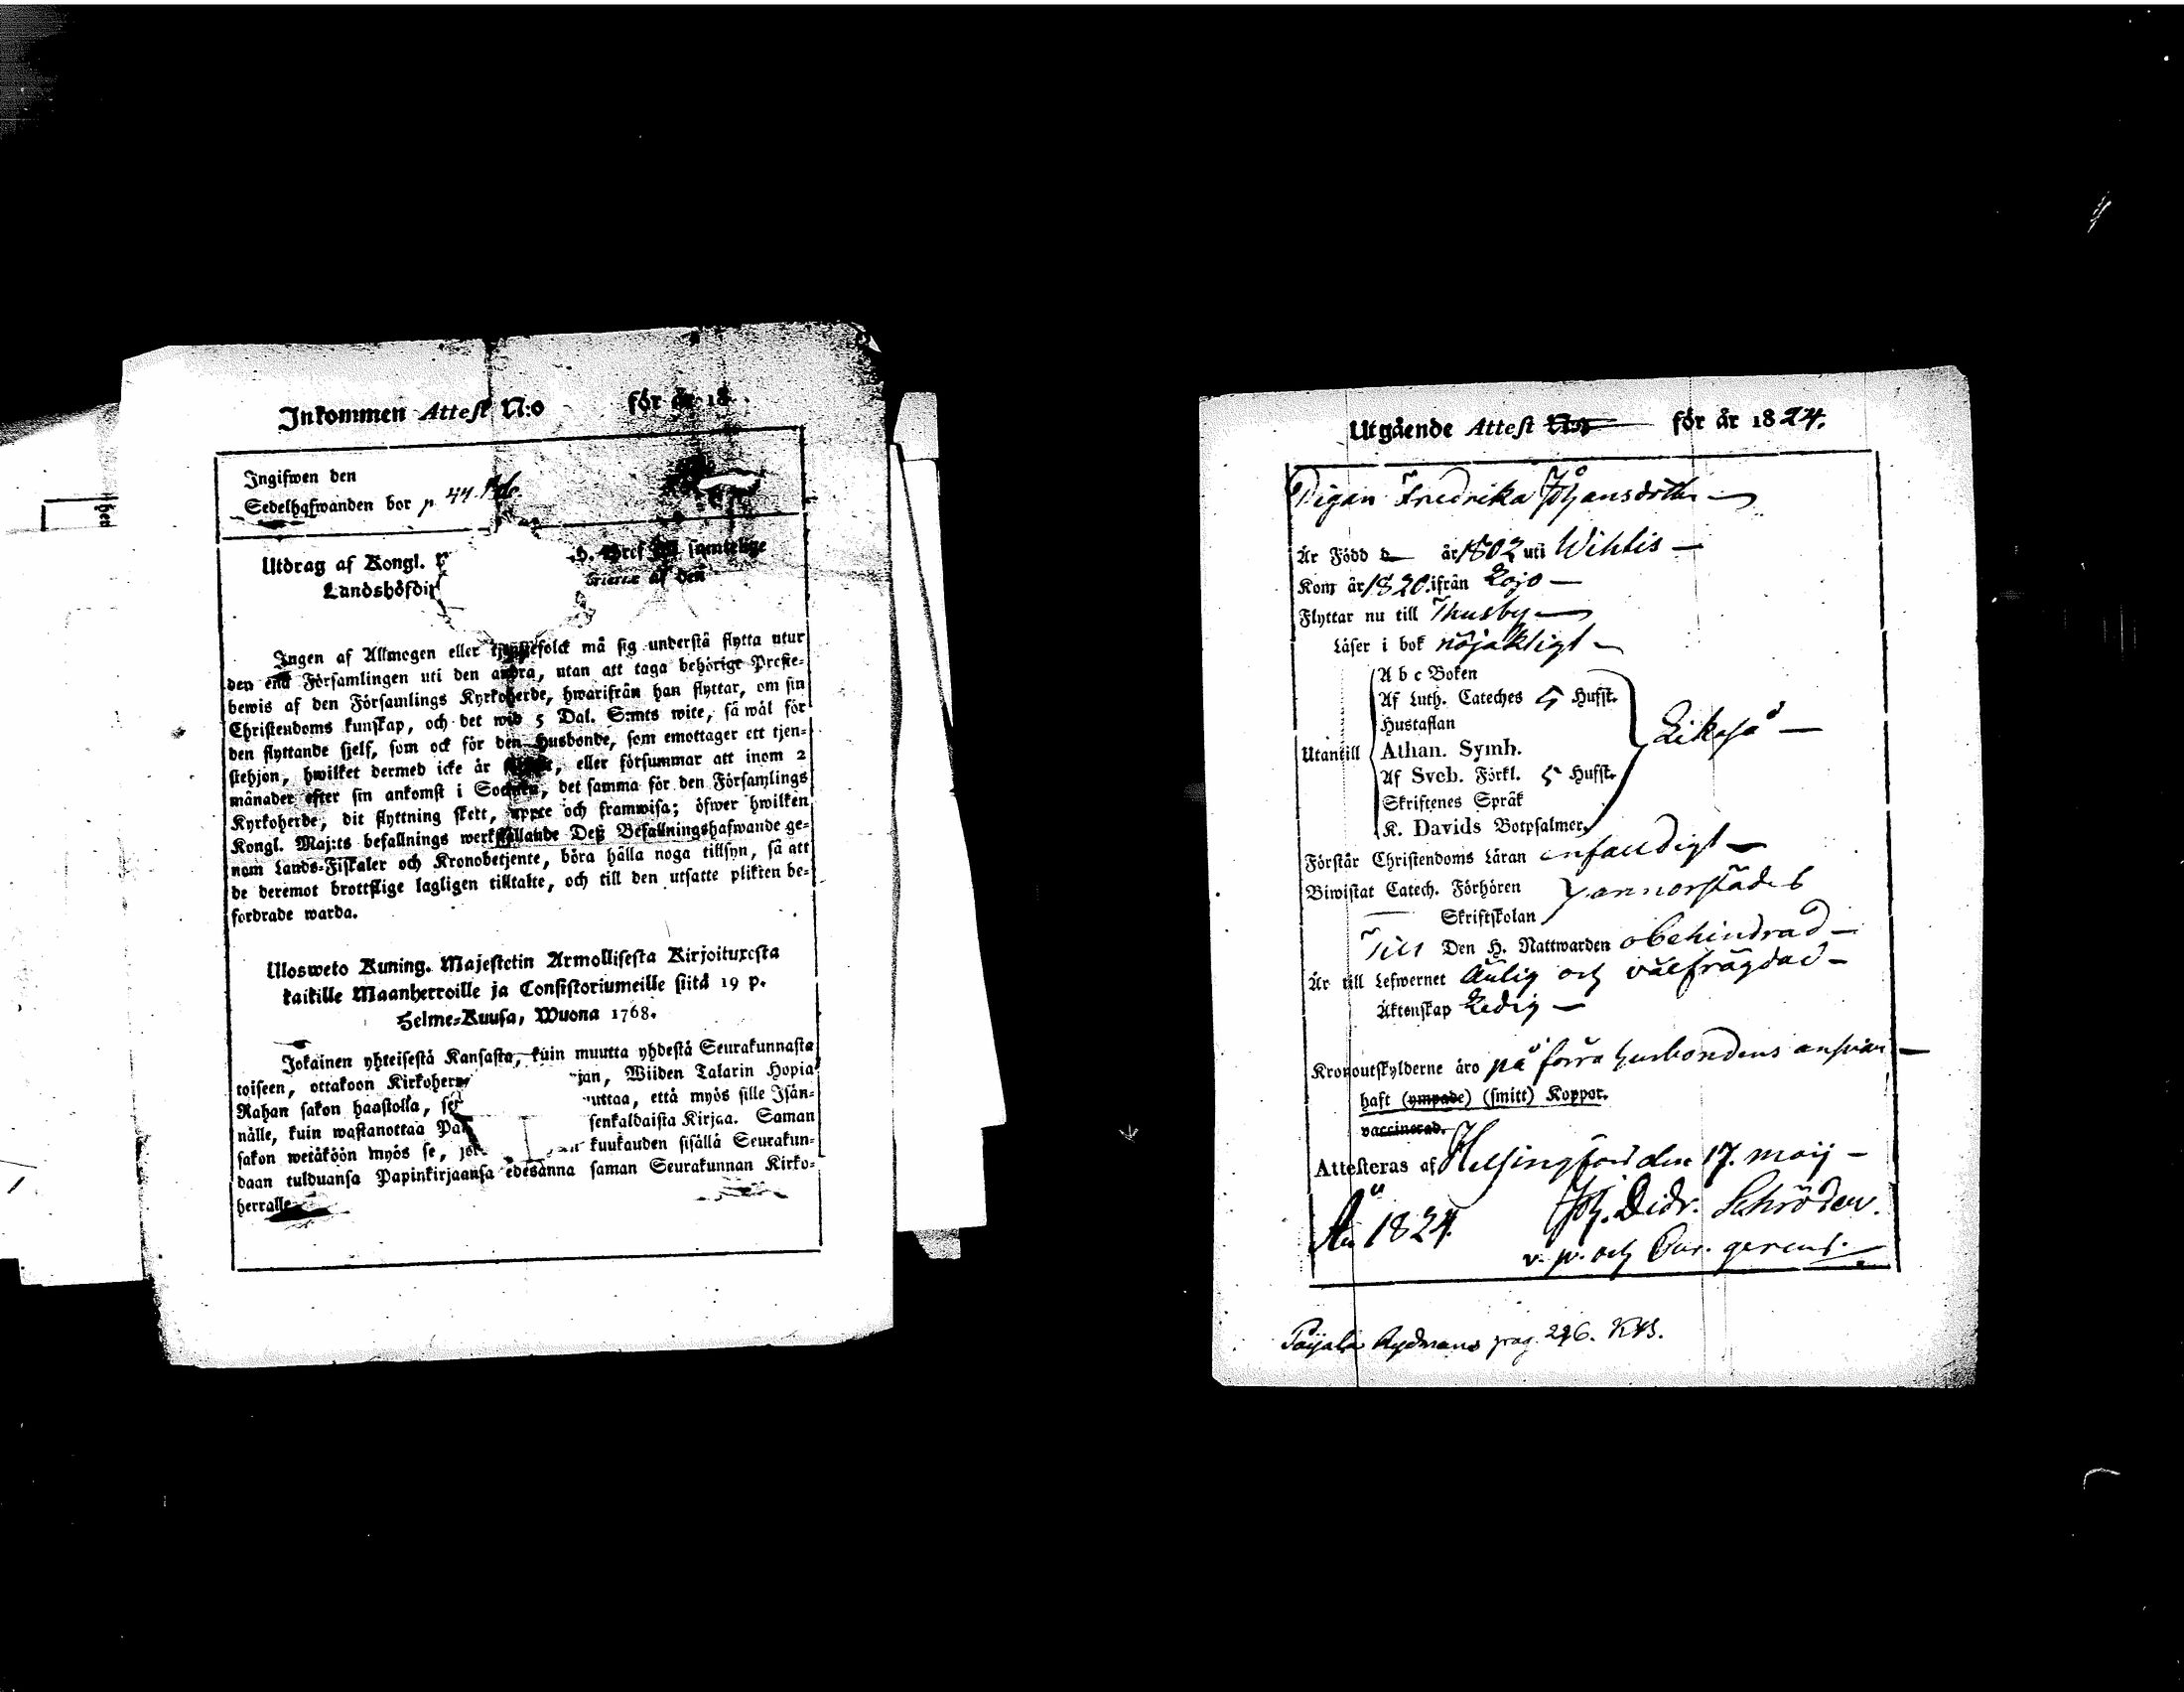 Inkommen Attest N:o för år 18
Ingifwen den
Sedelhafwanden bor p. 44.
Utdrag af Kongl. Bref samtelige
Landshöfdin af den
Ingen af Allmogen eller tjenstefolck må sig understå flytta utur
den ena Församlingen uti den andra, utan att taga behörigt Preste-
bewis af den Församlings Kyrkoherde, hwarifrån han flyttar, om sin
Christendoms kunskap, och det wid 5 Dal. S:mts wite, så wäl för
den flyttande sjelf, som ock för den Husbonde, som emottager ett tjen-
stehjon, hwilket dermed icke är , eller försummar att inom 2
månader efter sin ankomst i Socknen, det samma för den Församlings
Kyrkoherde, dit flyttning skett, uppte och framwisa; öfwer hwilken
Kongl. Maj:ts befallnings werkställande Deß Befallningshafwande ge-
nom Lands-Fiskaler och Kronobetjente, böra hålla noga tillsyn, så att
de deremot brottslige lagligen tilltalte, och till den utsatte plikten be-
fordrade warda.
Ulosweto Kuning. Majestetin Armollisesta Kirjoituxesta
kaikille Maanherroille ja Consistoriumeille siitä 19 p.
Helme-Kuusa, Wuona 1768.
Jokainen yhteisestä Kansasta, kuin muutta yhdestä Seurakunnasta
toiseen, ottakoon Kirkoherr jan, Wiiden Talarin Hopia
Rahan sakon haastolla, se uttaa, että myös sille Isän-
nälle, kuin wastanottaa Pa senkaldaista Kirjaa. Saman
sakon wetäköön myös se, jo kuukauden sisällä Seurakun-
daan tulduansa Papinkirjaansa edesänna saman Seurakunnan Kirko-
herralle
Utgående Attest N:o för år 1824.
Pigan Fredrika Johansdotter
Är Född d år 1802 uti Wihtis
Kom år 1820 ifrån Lojo
Flyttar nu till Thusby
Läser i bok nöjaktligt
A b c Boken
Af Luth. Cateches 5 Hufst.
Hustaflan
Utantill Athan. Symb. Likaså
Af Sveb. Förkl. 5 Hufst.
Skriftenes Språk
K. Davids Botpsalmer.
Förstår Christendoms Läran enfaldigt
Biwistat Catech. Förhören annorstädes
Skriftskolan
Till Den H. Nattwarden obehindrad
Är till Lefwernet ärlig och välfrägdad
Äktenskap Ledig
Kronoutskylderne äro på förra husbondens ansvar
haft (ympade) (smitt) Koppor.
vaccinerad.
Attesteras af Helsingfors den 17. maij
År 1824. Joh. Didr. Schröder.
v. p. och Cur. gerens.
Paijala Rydmans pag. 296. KB.